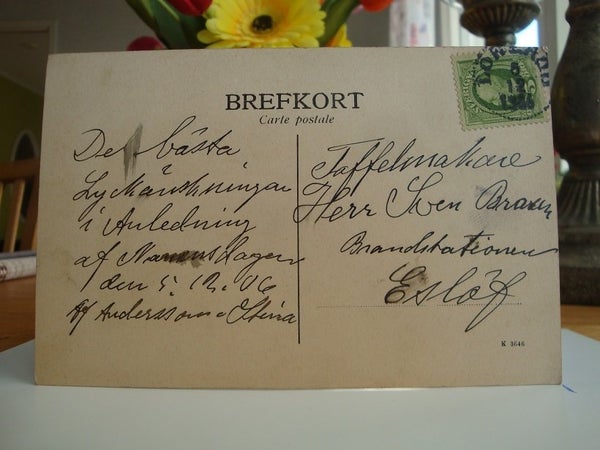 BREFKORT
Carte postale
De bästa
Lyckönskningar
i Anledning
af Namnsdagen
den 5. 12. 06
af Andersson o Stina
Taffelmakare
Herr Sven Braun
Brandstationen
Eslöf
K 3646